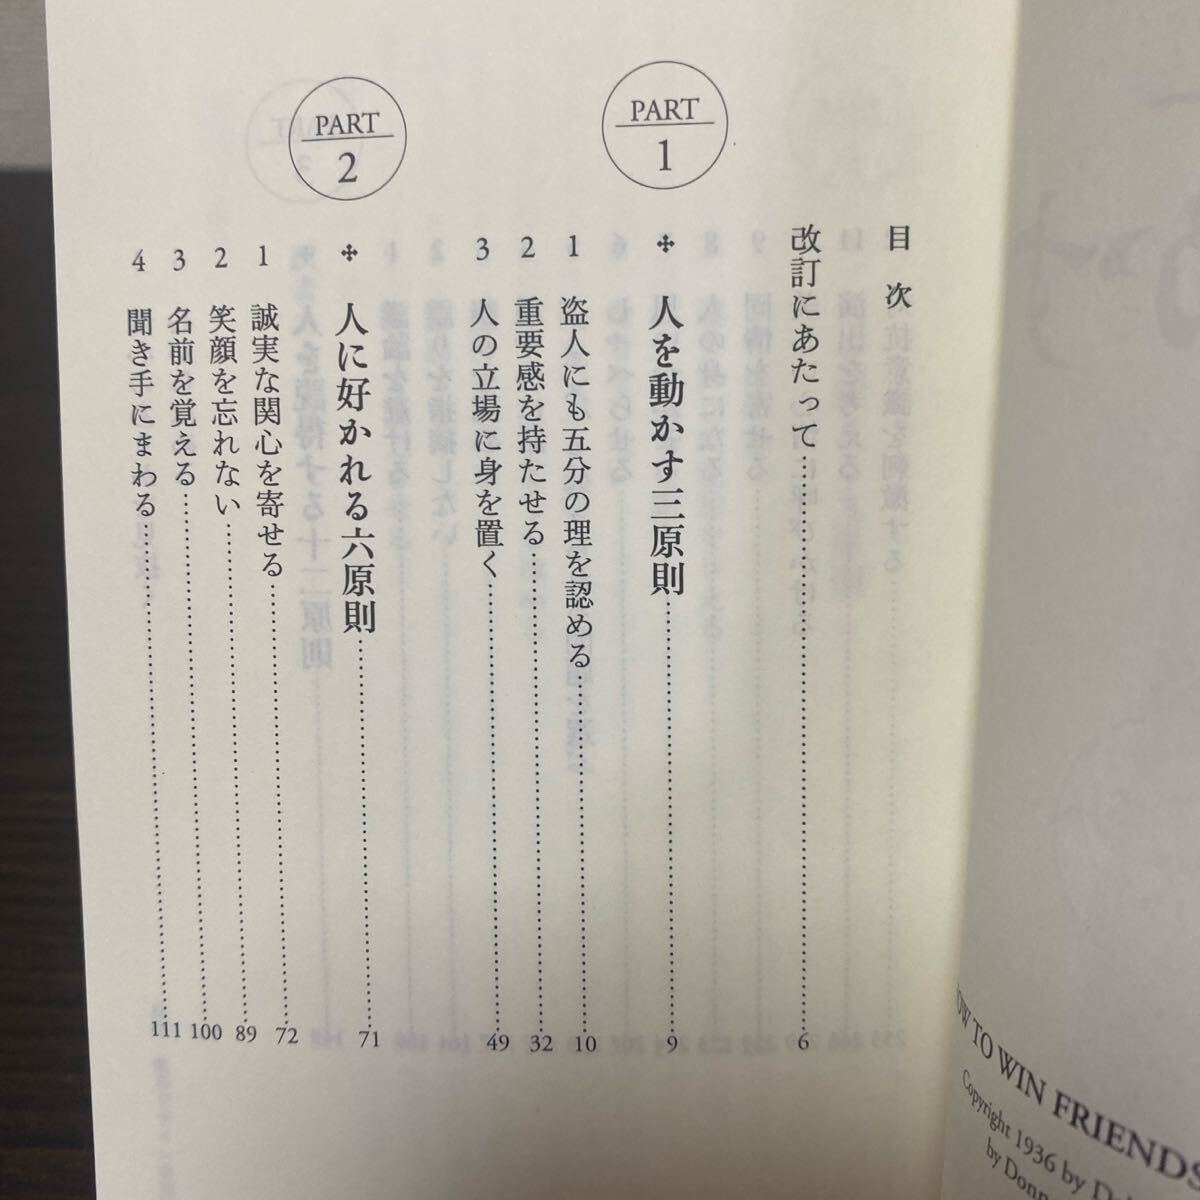 目次
改訂にあたって 6
PART 1
人を動かす三原則 9
1 盗人にも五分の理を認める 10
2 重要感を持たせる 32
3 人の立場に身を置く 49
PART 2
人に好かれる六原則 71
1 誠実な関心を寄せる 72
2 笑顔を忘れない 89
3 名前を覚える 100
4 聞き手にまわる 111
TO WIN FRIENDS
Copyright 1936 by
by